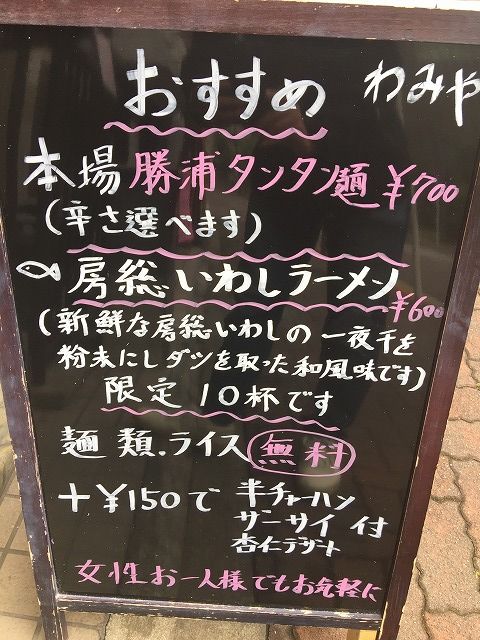 おすすめ わみや
本場 勝浦タンタン麺 ¥700
(辛さ選べます)
房総いわしラーメン
¥600
(新鮮な房総いわしの一夜干を
粉末にしダシを取った和風味です)
限定10杯です
麺類.ライス 無料
+¥150で 半チャーハン
ザーサイ 付
杏仁デザート
女性お一人様でもお気軽に